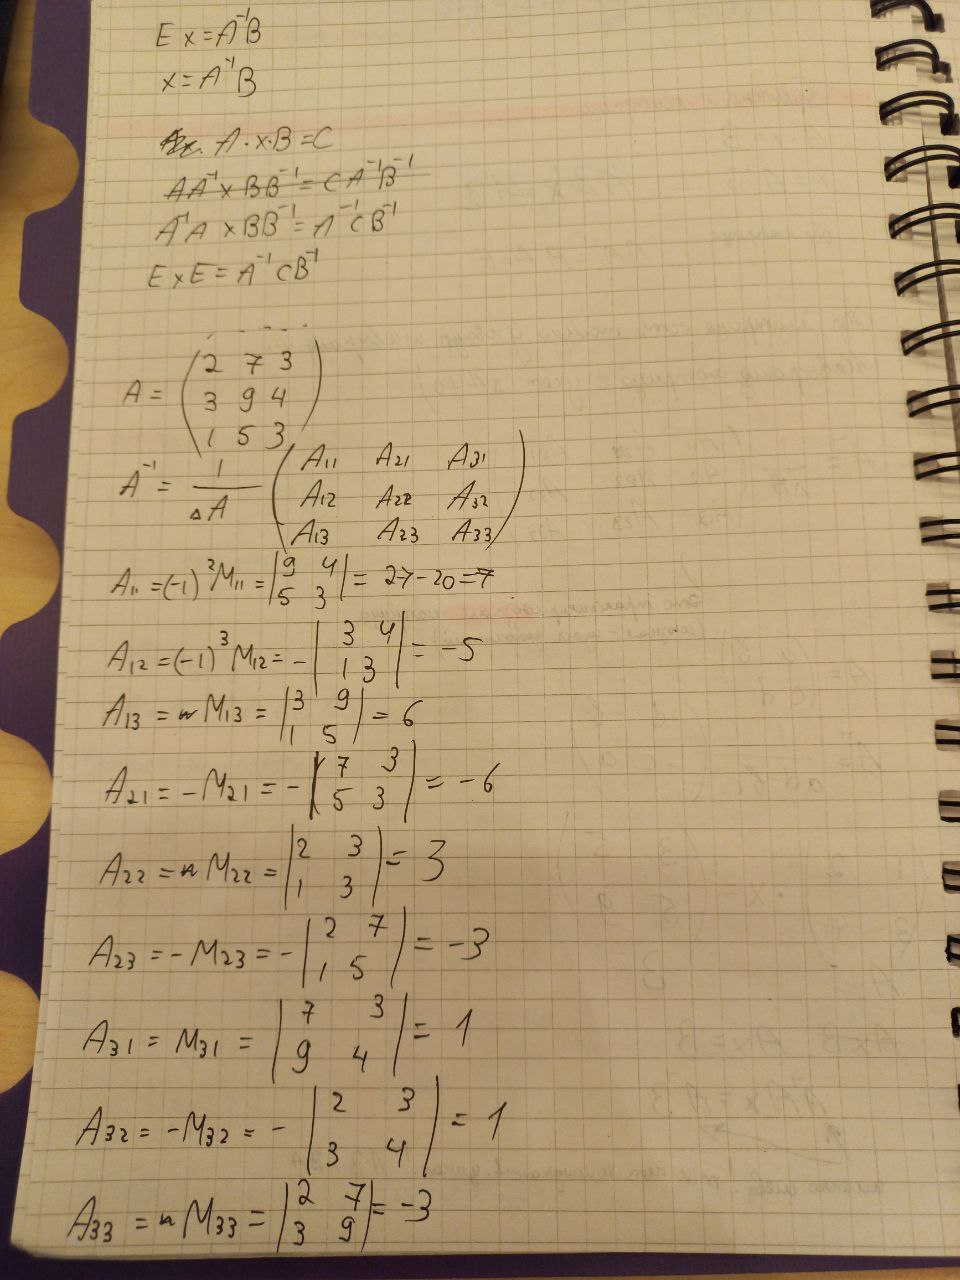 E x = A⁻¹B
x = A⁻¹B
A·x·B = C
AA⁻¹ x BB⁻¹ = C A⁻¹B⁻¹
A⁻¹A x BB⁻¹ = A⁻¹ C B⁻¹
E x E = A⁻¹ C B⁻¹
2 7 3
A = 3 9 4
1 5 3
A⁻¹ = 1/ΔA ( A11 A21 A31
A12 A22 A32
A13 A23 A33 )
A11 = (-1)² M11 = |9 4 / 5 3| = 27 - 20 = 7
A12 = (-1)³ M12 = - |3 4 / 1 3| = -5
A13 = M13 = |3 9 / 1 5| = 6
A21 = -M21 = - |7 3 / 5 3| = -6
A22 = M22 = |2 3 / 1 3| = 3
A23 = -M23 = - |2 7 / 1 5| = -3
A31 = M31 = |7 3 / 9 4| = 1
A32 = -M32 = - |2 3 / 3 4| = 1
A33 = M33 = |2 7 / 3 9| = -3